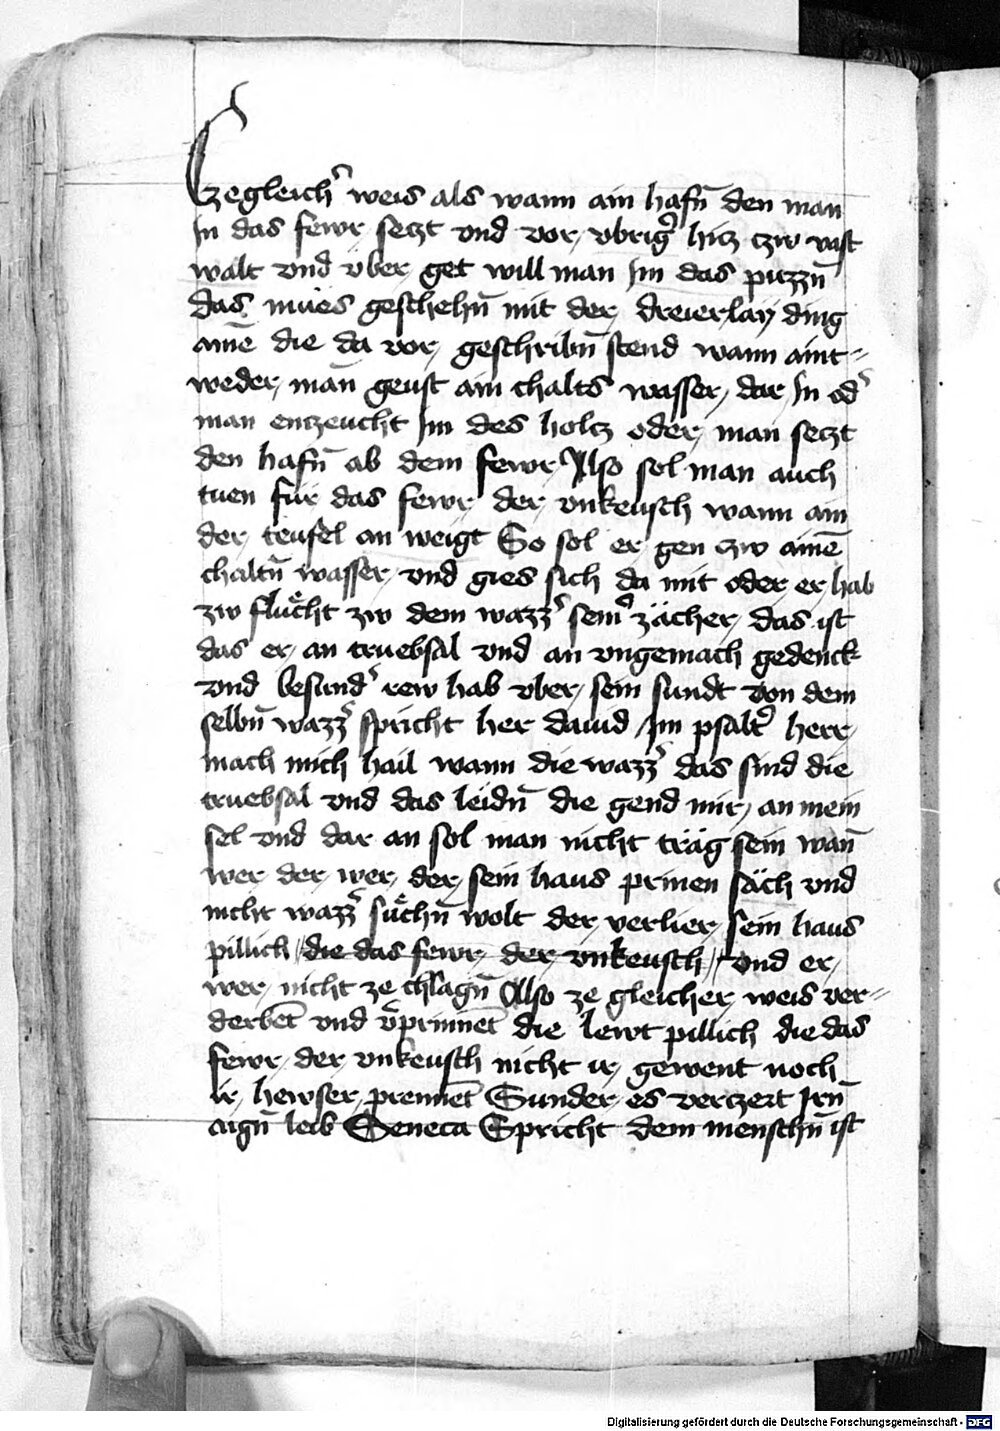 Czegleich᷑ weis als wann ain hafn̄ den man
In das fewr seczt vnd vor vbrig᷑ hicz czw vast
walt vnd v̈ber get will man Im das puzzn̄
das mues geschehn̄ mit der dreierlay ding
ainē die da vor geschribn̄ stend wann aint=
weder man geust ain chalts wasser dar In od᷑
man enczeucht Im des holcz oder man seczt
den hafn̄ ab dem fewr Also sol man auch
tuen für das fewr der vnkeusch wann ain
der teufel an weigt So sol er gen czw ainē
chaltn̄ wasser vnd gies sich da mit oder er hab
zw flüecht zw dem wazz᷑ sein᷑ zächer das ist
das er an truebsal vnd an vngemach gedenck
vnd besund᷑ rew hab vber sein sundt von dem
selbn̄ wazz᷑ spricht her dauid Im psalt᷑ herr
mach mich hail wann die wazz᷑ das sind die
truebsal vnd das leidn̄ die gend mir an mein
sel vnd dar an sol man nicht träg sein wan̄
wer der wer der sein haus prinen säch vnd
nicht wazz᷑ süechn̄ wolt der verlier sein haus
pillich die das fewr der vnkeusch vnd er
wer nicht ze chlagn̄ Also ze gleicher weis ver=
derbēt vnd v᷑prinnēt die lewt pillich die das
fewr der vnkeusch nicht ir gewent noch
ir hewser prennēt Sunder es verczert Irn̄
aign̄ leib Seneca Spricht dem menschn̄ ist
Digitalisierung gefördert durch die Deutsche Forschungsgemeinschaft - DFG